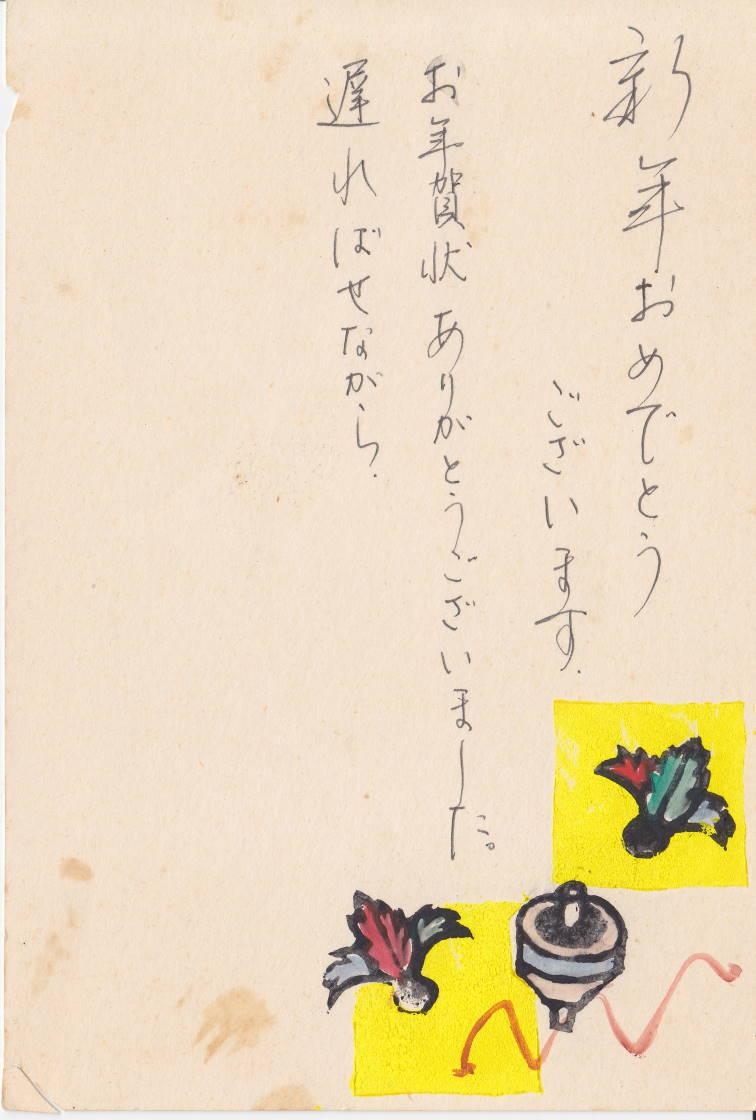 新年おめでとう
ございます.
お年賀状ありがとうございました。
遅ればせながら.